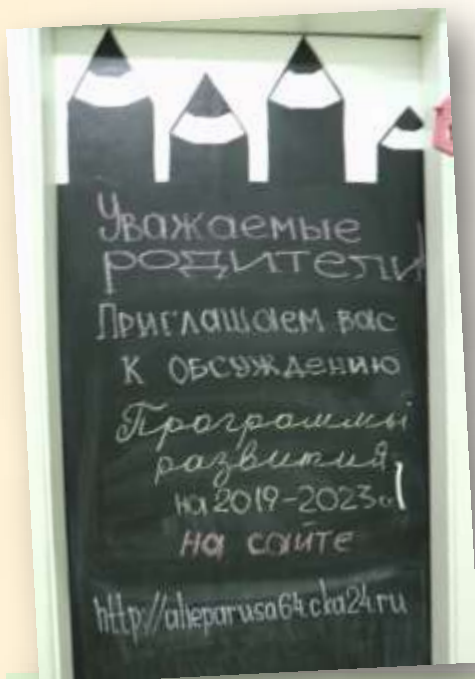 Уважаемые
родители!
Приглашаем вас
к обсуждению
Программы
развития
на 2019-2023г.
на сайте
http://alieparusa64.cka24.ru